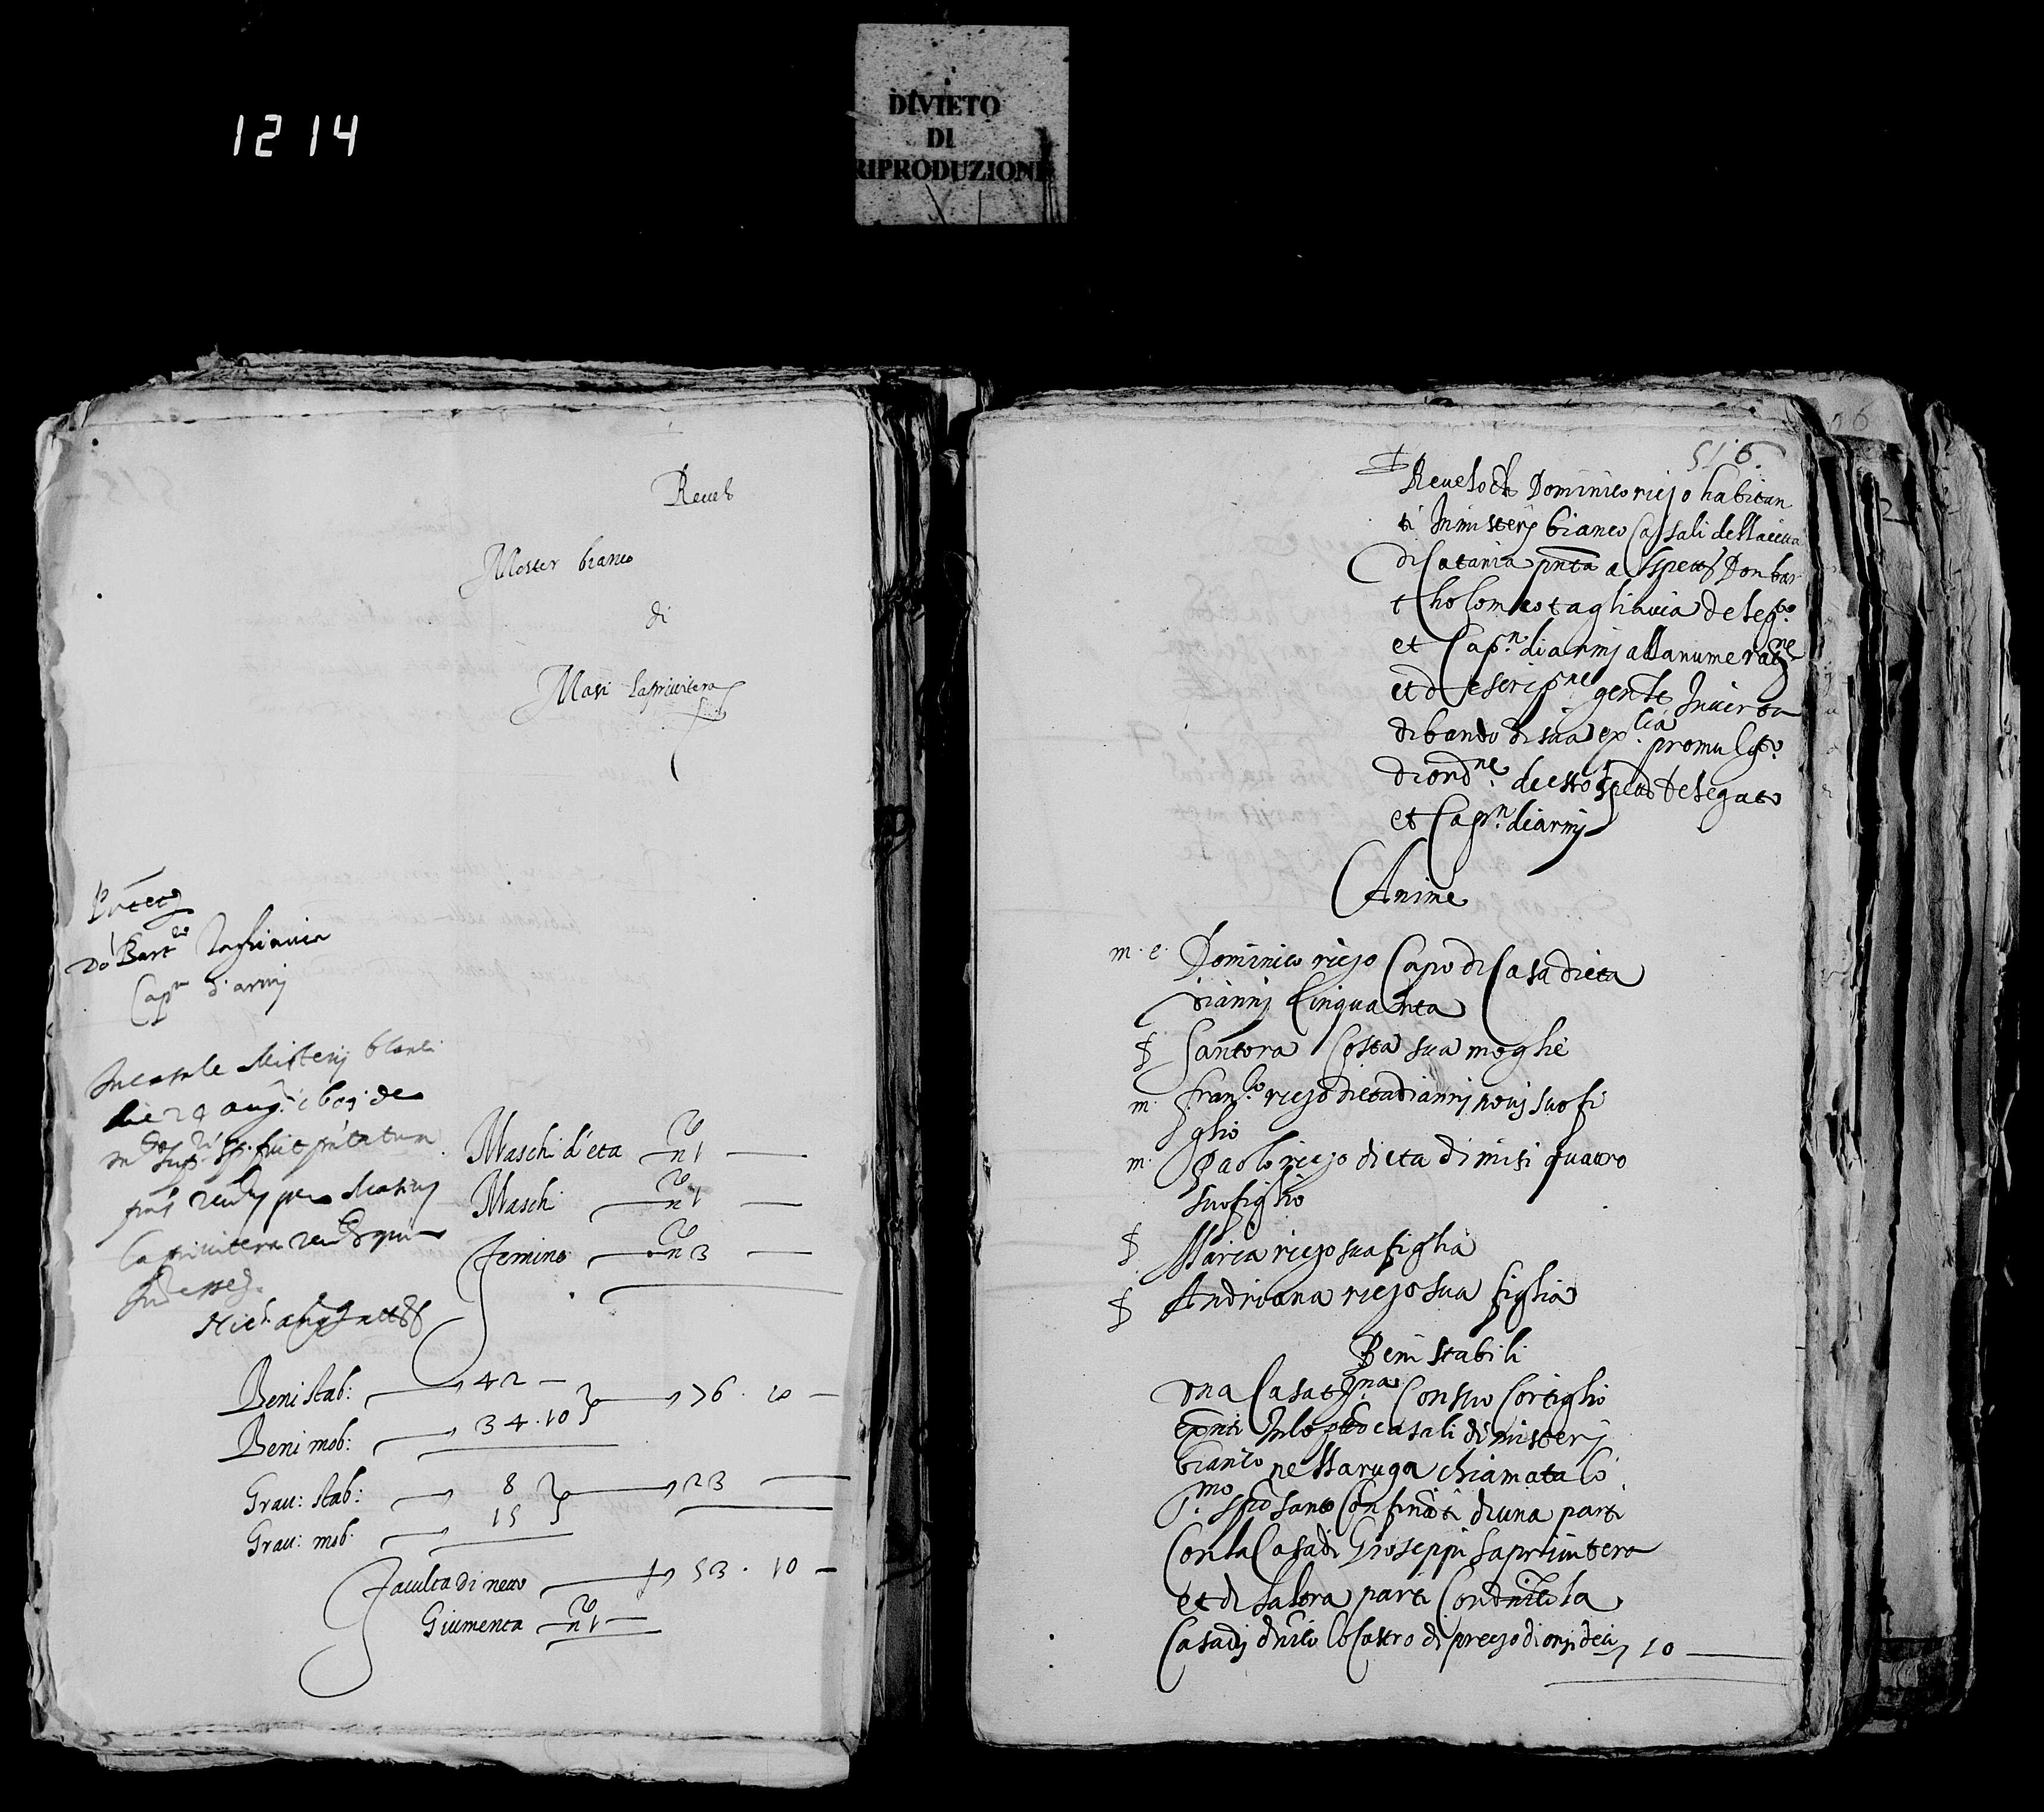 1214
DIVIETO
DI
RIPRODUZIONE
Revelo
Mister bianco
di
Masi Laprivitera
Don Bart.eo Tagliavia
Cap.n d'armj
In casale Misterij blanci
die 29 aug.ti
Maschi d'eta n.o 1
Maschi n.o 1
Femine n.o 3
Beni stab: 42
76 . 10
Beni mob: 34 . 10
Grav: stab: 8
23
Grav: mob: 15
Faculta di netto 53 . 10
Giumenta n.o 1
516
Revelo di Dominico riczo habitan
ti In misterj bianco Casali della citta
di Catania pnta a Don bar
tholomeo tagliavia deleg.to
et Cap.n di armj alla numerat.ne
et descrip.ne gente In virtu
di bando di sua ex.cia promulg.to
di ord.ne di esto delegato
et Cap.n di armj
Anime
m. e. Dominico riczo Capo di Casa di eta
di annj Cinquanta
f Santora Costa sua moglie
m. fran.co riczo di eta di annj novj suo fi
glio
m. Paolo riczo di eta di misi quattro
suo figlio
f Maria riczo sua figlia
f Andriana riczo sua figlia
Beni stabili
Una Casa Con suo Cortiglio
In lo casali di misterj
bianco nella ruga chiamata lo
S.mo santo Confinanti di una parti
Con la Casa di Gioseppi Laprivitera
et di laltra parti Con la
Casa di lo Castro di prezo di onzi deci 10